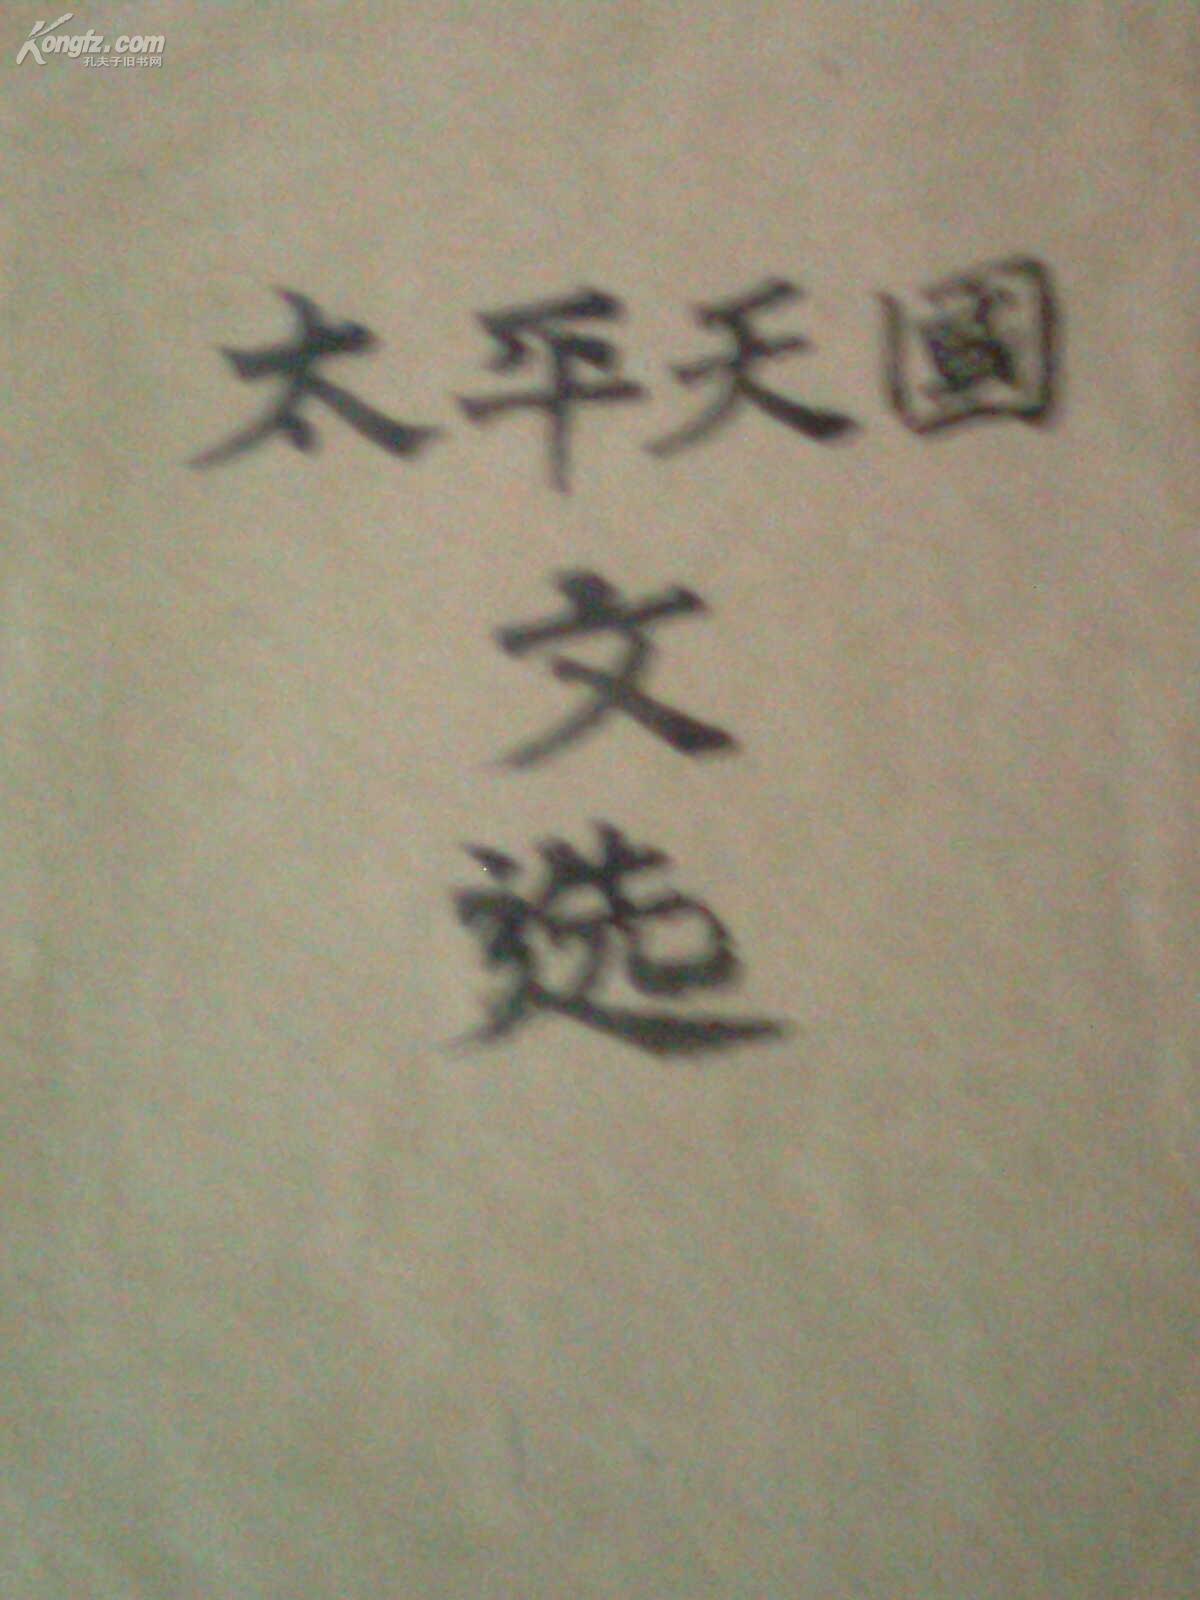 Kongfz.com
孔夫子旧书网
太平天國
文
选